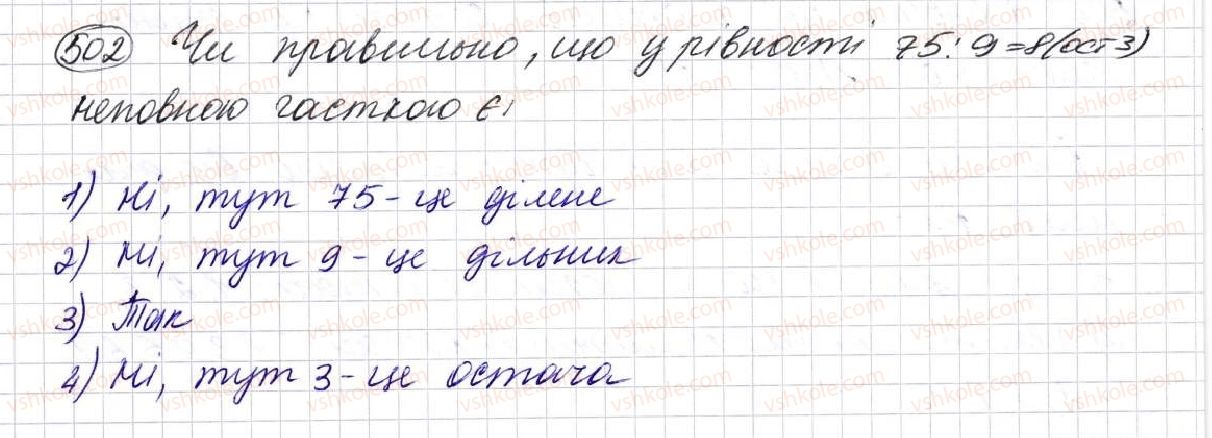 502 Чи правильно, що у рівності 75:9=8(ост 3)
неповною часткою є:
1) Ні, тут 75 - це ділене
2) Ні, тут 9 - це дільник
3) Так
4) Ні, тут 3 - це остача